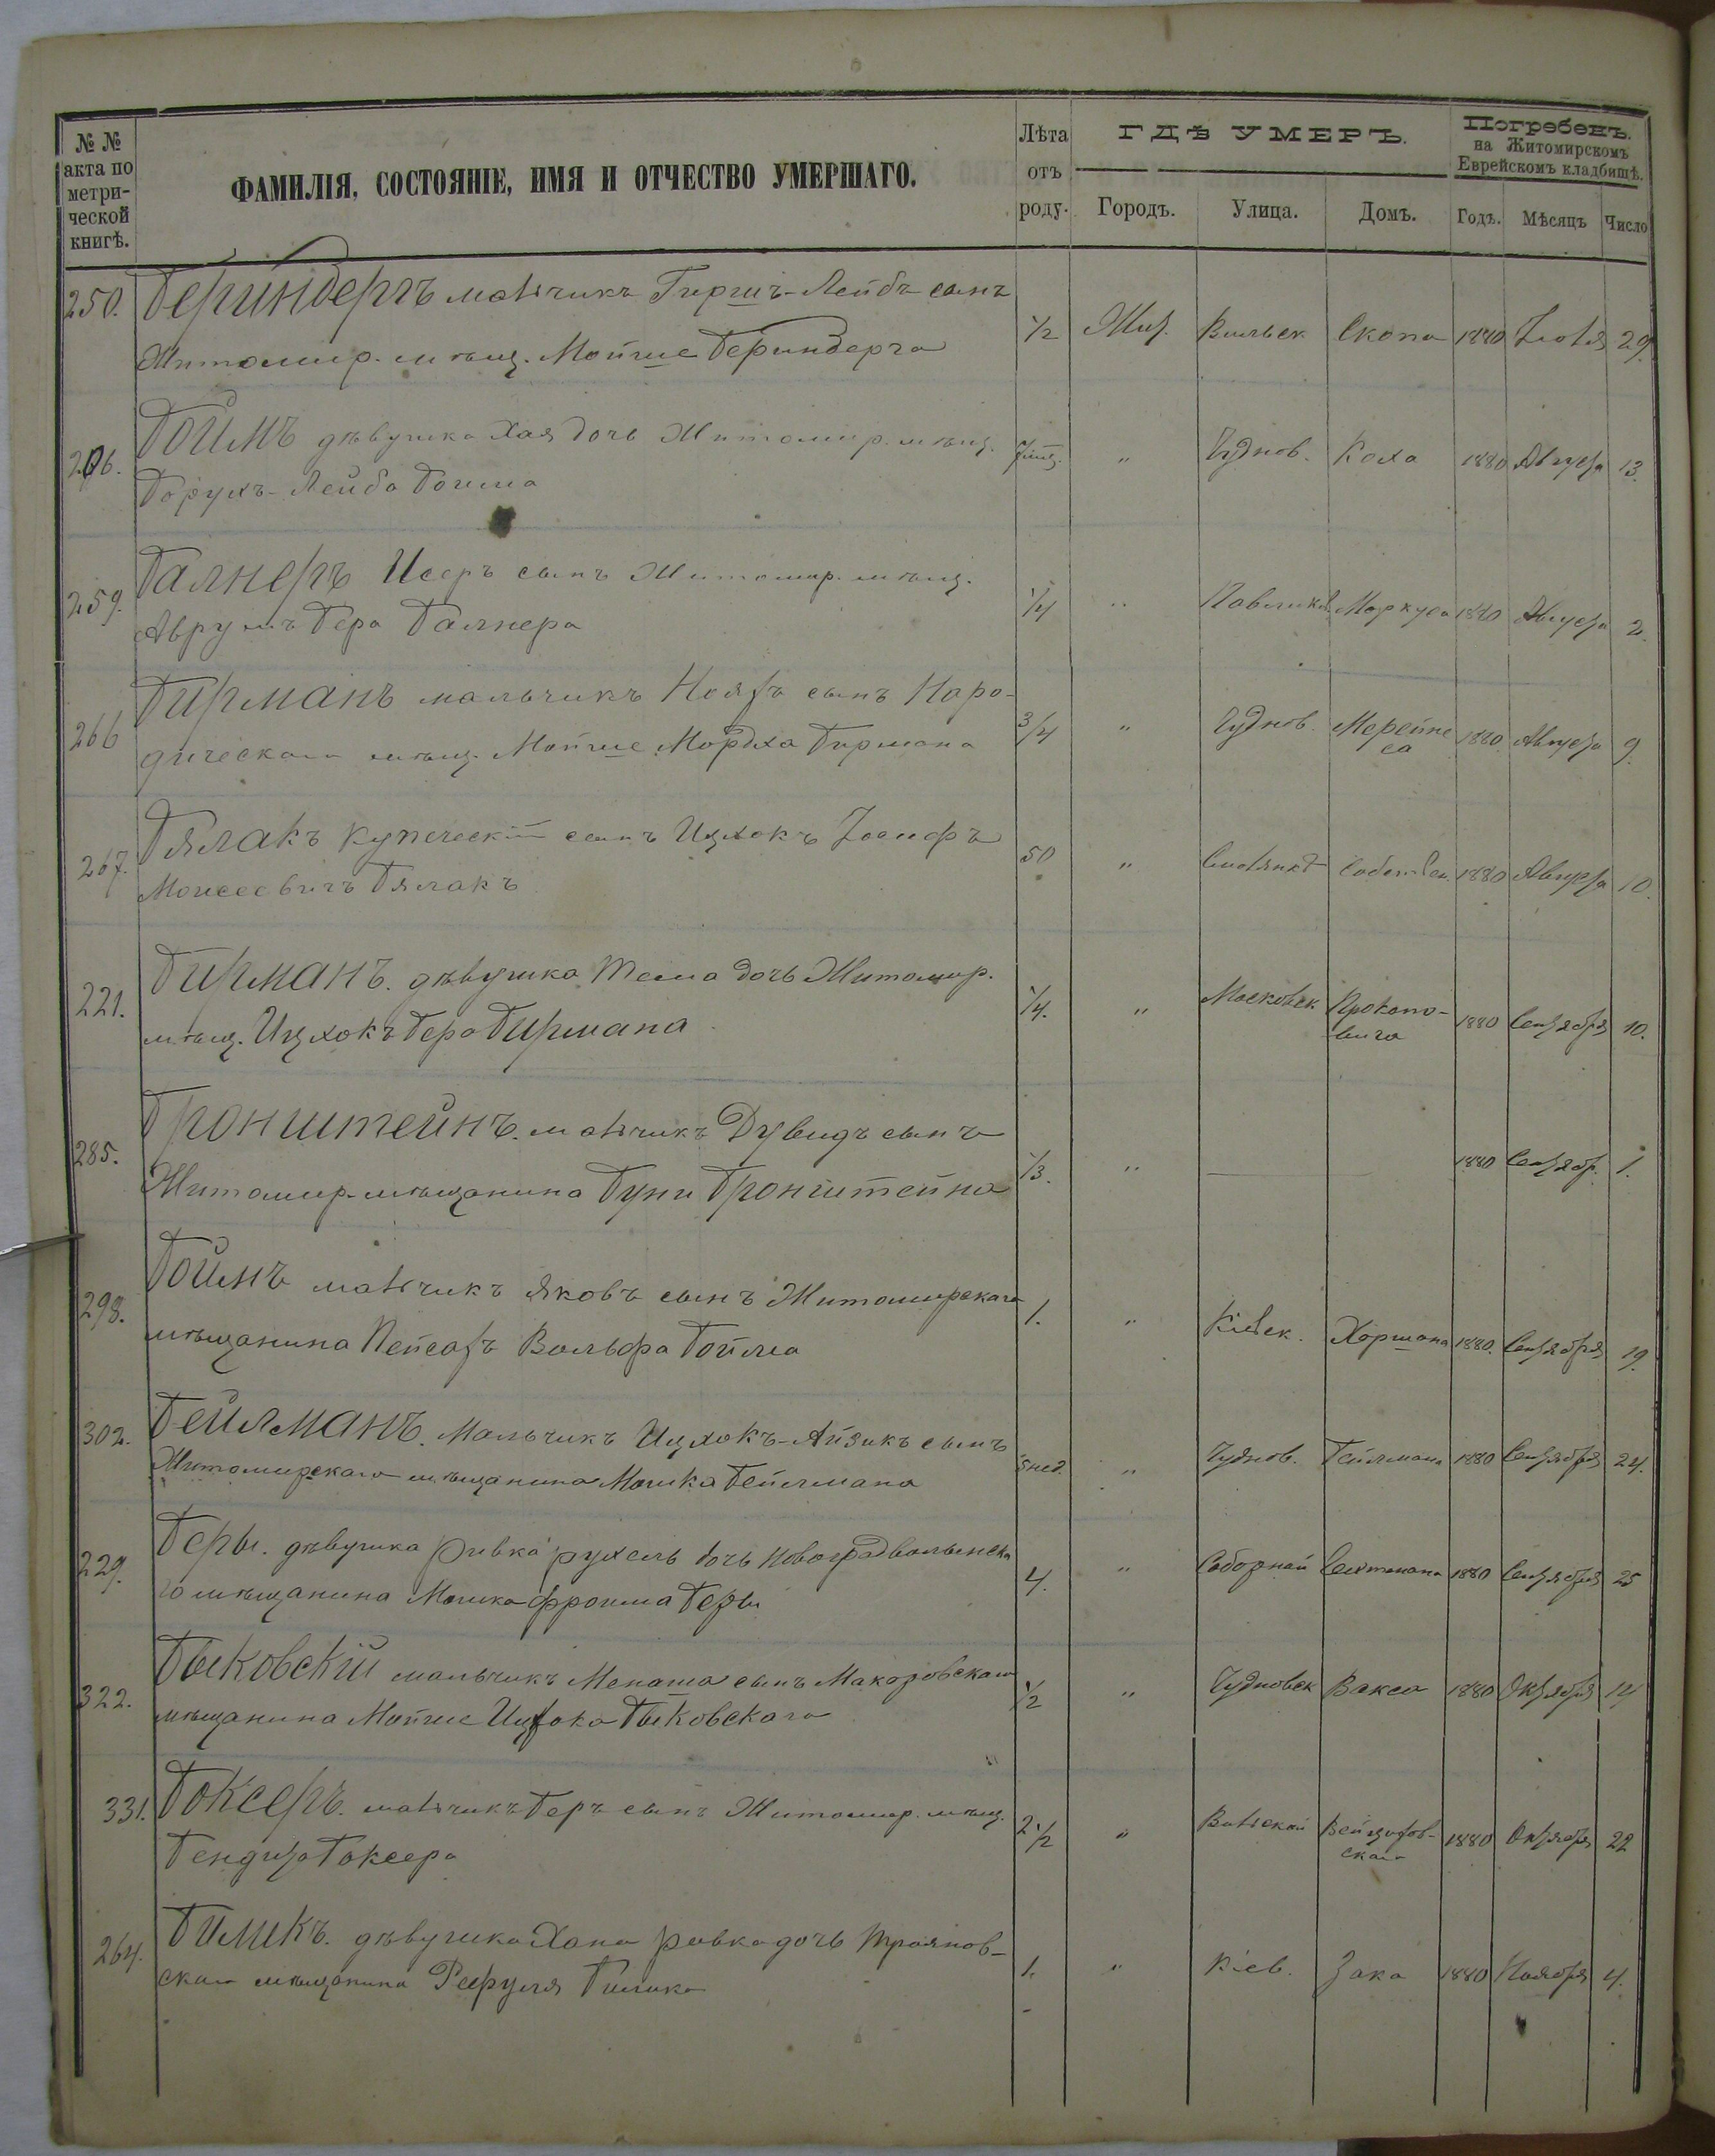 № №
акта по
метри-
ческой
книгѣ.
ФАМИЛІЯ, СОСТОЯНІЕ, ИМЯ И ОТЧЕСТВО УМЕРШАГО.
Лѣта
отъ
роду.
ГДѢ УМЕРЪ.
Городъ. Улица. Домъ.
Погребенъ.
на Житомирскомъ
Еврейскомъ кладбищѣ.
Годъ. Мѣсяцъ Число
250. Бериндергъ мальчикъ Гиршъ-Лейбъ сынъ
Житомир. мѣщ. Мойше Бериндерга 1/2 Жит. Вильск Скопа 1880 Іюля 29.
206. Боймъ дѣвушка Хая дочь Житомир. мѣщ. „ Чуднов. Коха 1880 Августа 13.
Борухъ-Лейба Бойма
259. Балнеръ Исеръ сынъ Житомир. мѣщ.
Аврумъ Бера Балнера 1/4 „ Маркуса 1880 Августа 2.
266 Бирманъ мальчикъ сынъ Наро-
дическаго мѣщ. Мойше Мордха Бирмана 3/4 „ Чуднов. 1880 Августа 9.
267. Бялакъ купеческій сынъ Ицхокъ Іосифъ
Моисеевичъ Бялакъ 50 „ Собствен. 1880 Августа 10.
221. Бирманъ. дѣвушка Тема дочь Житомир.
мѣщ. Ицхокъ Бера Бирмана 1/4. „ Московск Прокопо-
вича 1880 Сентября 10.
285. Бронштейнъ. мальчикъ Дувидъ сынъ
Житомир. мѣщанина Буни Бронштейна 1/3. „ — — 1880 Сентябр. 1.
298. Боймъ мальчикъ Яковъ сынъ Житомирскаго
мѣщанина Пейсахъ Вольфа Бойма 1. „ Кіевск. Хоршана 1880. Сентября 19.
302. Бейлманъ. Мальчикъ Ицхокъ-Айзикъ сынъ
Житомирскаго мѣщанина Мошка Бейлмана 5 нед. „ Чуднов. Бейлмана 1880 Сентября 24.
229. Беры. дѣвушка Ривка Рухель дочь Новоградволынска
го мѣщанина Мошка Фроима Беры 4. „ Соборной 1880 Сентября 25
322. Быковскій мальчикъ Менаша сынъ Макаровскаго
мѣщанина Мойше Ицхока Быковскаго 1/2 „ Чудновск Вакса 1880 Октября 14
331. Боксеръ. мальчикъ Беръ сынъ Житомир. мѣщ.
Бендита Боксера 2 1/2 „ Вильской 1880 Октября 22
264. Биликъ. дѣвушка Хана Ривка дочь Троянов-
скаго мѣщанина Рефуля Билика 1. „ Кіев. Зака 1880 Ноября 4.